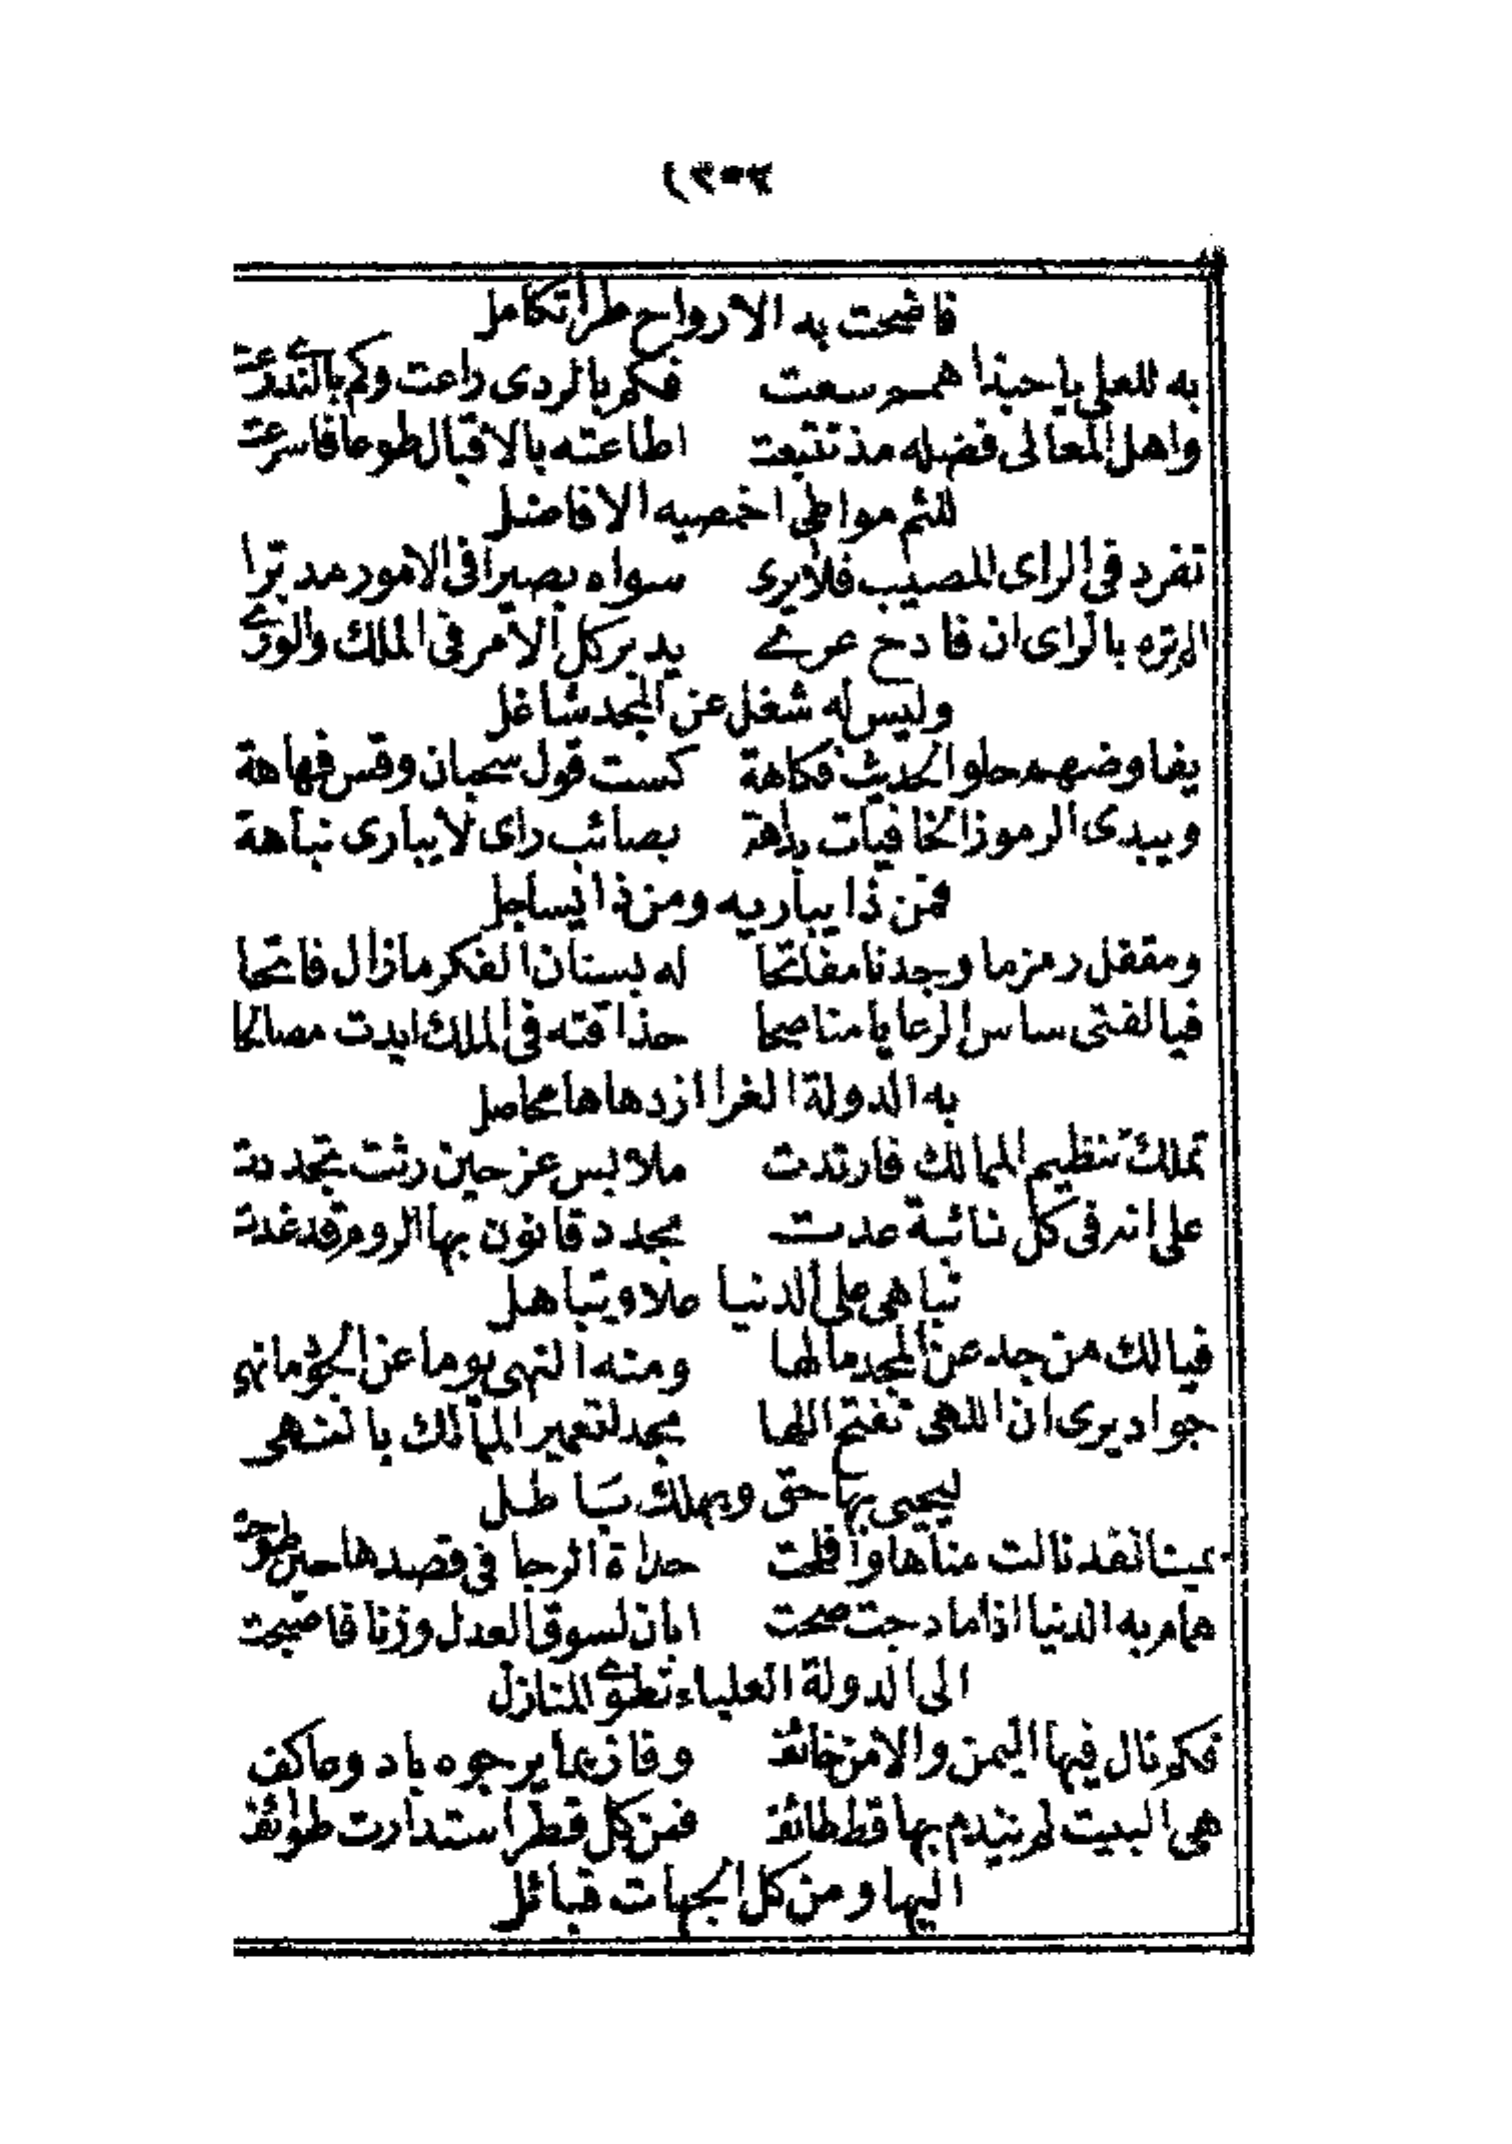 فاضحت به الارواح طرا تكامل
به للعلى يا حبذا همم سعت فكم بالردى راعت وكم بالندى رعت
واهل المعالى فضله مذ تتبعت اطاعته بالاقبال طوعا فاسرعت
للثم مواطى اخمصيه الافاضل
تفرد فى الراى المصيب فلا يرى سواه بصيرا فى الامور مدبرا
الم تره بالراى ان فادح عرى يدبر كل الامر فى الملك والورى
وليس له شغل عن المجد شاغل
يفاوضهم حلو الحديث فكاهة كست قول سحبان وقس فهاهة
ويبدى الرموز الخافيات بداهة بصائب راى لا يبارى نباهة
فمن ذا يباريه ومن ذا يساجل
ومقفل رمز ما وجدنا مفاتحا له بسنان الفكر مازال فاتحا
فيا لفتى ساس الرعايا مناصحا حذاقته فى الملك ابدت مصالحا
به الدولة الغرا ازدهاها محاصل
تملك تنظيم الممالك فارتدت ملابس عز حين رثت تجددت
على انه فى كل نائبة عدت مجدد قانون بها الروم قد غدت
تباهى على الدنيا علا وتباهل
فيا لك من جد عن المجد مالها ومنه النهى يوما عن الجود مانهى
جواد يرى ان اللهى تفتح اللها مجد لتعمير الممالك بالنهى
ليحيى بها حق ويهلك باطل
يمينا لقد نالت مناها وافلحت حداة الرجا فى قصدها حين طوحت
همام به الدنيا اذا ما دجت صحت ابان لسوق العدل وزنا فاصبحت
الى الدولة العلياء تطوى المنازل
فكم نال فيها اليمن والامن خائف وفاز بما يرجوه باد وعاكف
هى البيت لم يندم بها قط طائف فمن كل قطر استدارت طوائف
اليها ومن كل الجهات قبائل